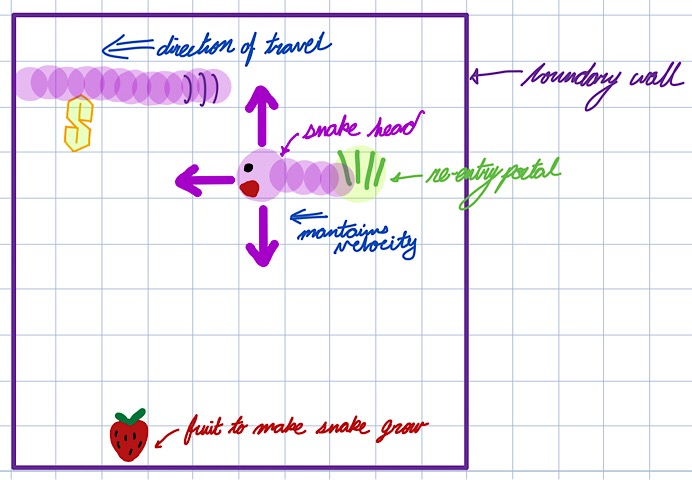 direction of travel
boundary wall
S
snake head
re-entry portal
mantains
velocity
fruit to make snake grow